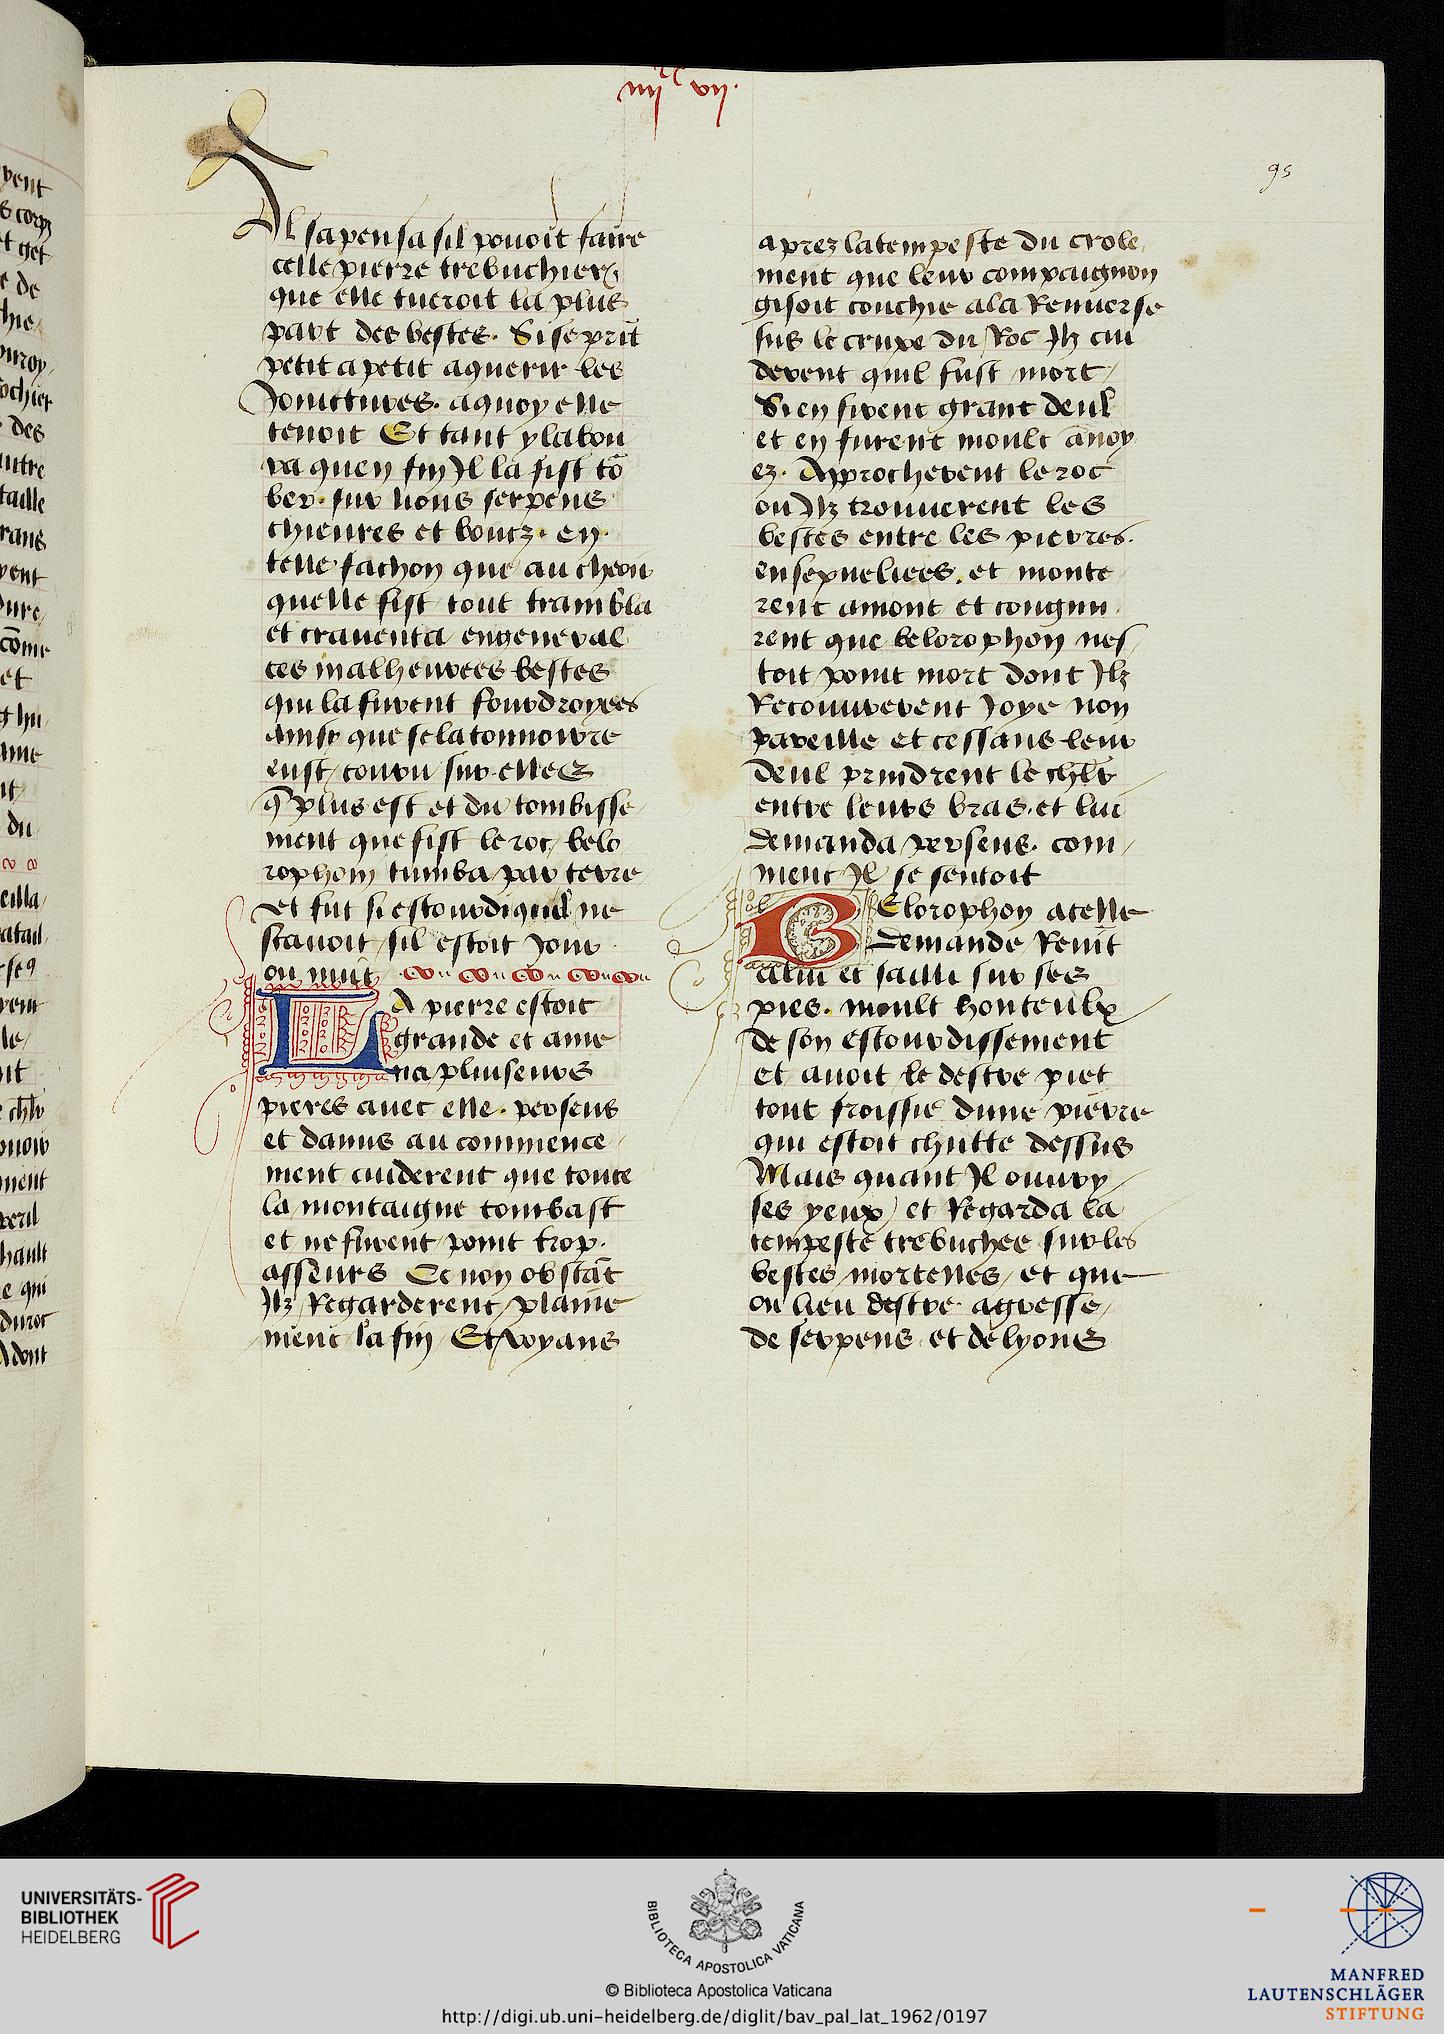 iiijxx vij.
95
Il sapensa sil pouoit faire
celle pierre trebuchier
que elle tueroit la plus
part des bestes. Si se prit̄
petit a petit aquerir les
Jointures. aquoy elle
tenoit Et tant y labou
ra quen fin Jl la fist to᷑
ber. sur lions serpens
chieures et boucz. en
telle fachon que au cheoir
quelle fist tout trambla
et crauenta en general
ces malheurees bestes
qui la furent fourdroyees
ainsy que se la tonnoirre
eust couru sur elles
q̄ plus est et du tombisse
ment que fist le roc belo
rophom tumba par terre
Et fut si estourdi quil ne
scauoit sil estoit Jour
ou nuit
LA pierre estoit
grande et ame
na pluiseurs
pieres auec elle. perseus
et danus au commence
ment cuiderent que toute
la montaigne tombast
et ne furent point trop.
asseurs Ce non obstāt
Jlz Regarderent plaine
ment la fin Et voyans
aprez la tempeste du crole
ment que leur compaignon
gisoit couchie a la Renuerse
sus le crupe du Roc Jlz cui
derent quil fust mort
Si en firent grant deul
et en furent moult ānoy
ez. Approcherent le roc
ou Jlz trouuerent les
bestes entre les pierres.
ensepueliees. et monte
rent amont et congnu
rent que belorophon nes
toit point mort dont Jlz
Recouurerent Joye non
pareille et cessans leur
deul prindrent le chl̄r
entre leurs bras. et lui
demanda perseus. com
ment Jl se sentoit
BElorophon a celle
demande Reuīt
a lui et sailli sur ses
pies. moult honteulx
de son estourdissement
et auoit le destre piet
tout froissie dune pierre
qui estoit chutte dessus
Mais quant Jl ouury
ses yeux et Regarda la
tempeste trebuchee sur les
bestes mortelles et que
ou lieu destre agresse
de serpens et de lyons
UNIVERSITÄTS-
BIBLIOTHEK
HEIDELBERG
BIBLIOTECA APOSTOLICA VATICANA
© Biblioteca Apostolica Vaticana
http://digi.ub.uni-heidelberg.de/diglit/bav_pal_lat_1962/0197
MANFRED
LAUTENSCHLÄGER
STIFTUNG